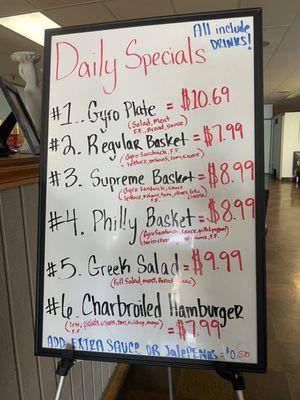 All include
DRINKS!
Daily Specials
#1. Gyro Plate = $10.69
(Salad, meat
F.F., Bread, sauce)
#2. Regular Basket = $7.99
(Gyro Sandwich, F.F.
lettuce, onions, tom, sauce)
#3. Supreme Basket = $8.99
(Gyro Sandwich, sauce
lettuce, onions, tom, olives, feta
F.F. cheese)
#4. Philly Basket = $8.99
(Gyro Sandwich, sauce, grilled peppers
swiss cheese, onions, F.F.)
#5. Greek Salad = $9.99
(Full Salad, meat, Bread, sauce)
#6. Charbroiled Hamburger
(lett, pickles, onions, tom, ketchup, mayo)
F.F. = $7.99
ADD EXTRA SAUCE OR JalePENOs = $0.50